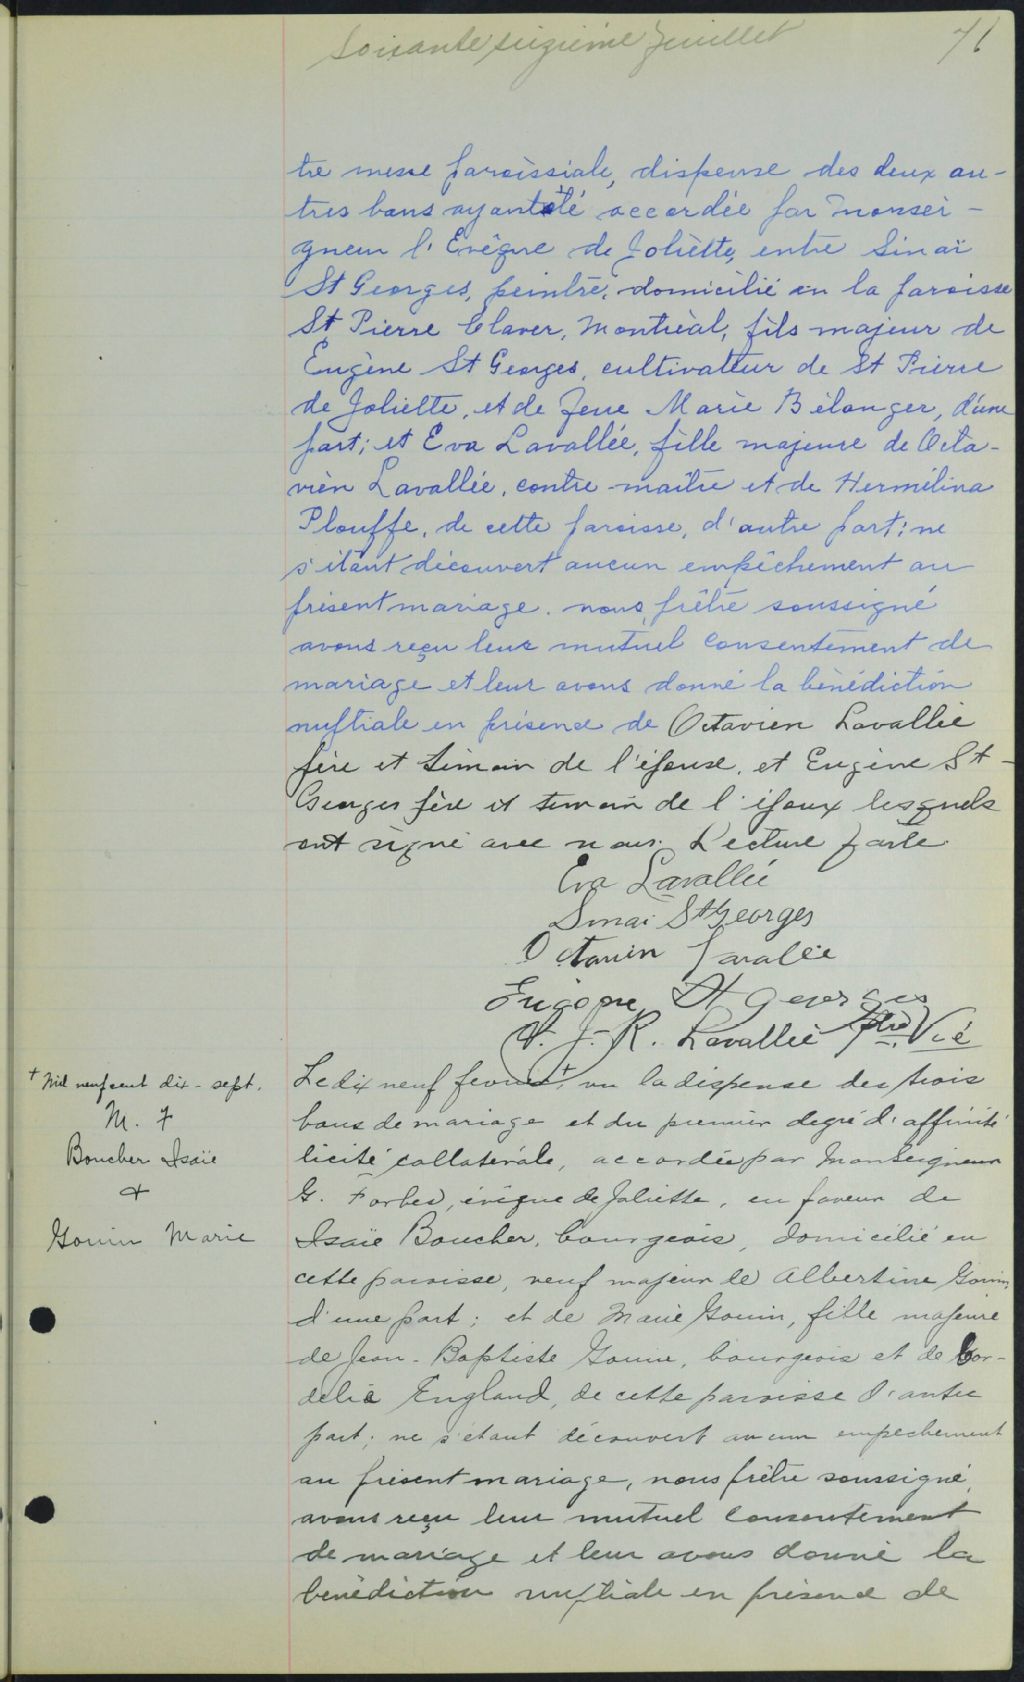 Soixante seizième feuillet 71
tre messe paroissiale, dispense des deux au-
tres bans ayant été accordée par Monsei-
gneur l'Evêque de Joliette, entre Sinaï
St Georges, peintre, domicilié en la paroisse
St Pierre Claver, Montréal, fils majeur de
Eugène St Georges, cultivateur de St Pierre
de Joliette, et de feue Marie Bélanger, d'une
part; et Eva Lavallée, fille majeure de Octa-
vien Lavallée, contre-maître et de Hermélina
Plouffe, de cette paroisse, d'autre part; ne
s'étant découvert aucun empêchement au
présent mariage. nous, prêtre soussigné
avons reçu leur mutuel consentement de
mariage et leur avons donné la bénédiction
nuptiale en présence de Octavien Lavallée
père et témoin de l'épouse, et Eugène St-
Georges père et témoin de l'époux lesquels
ont signé avec nous. Lecture faite
Eva Lavallée
Sinai St Georges
Octavien Lavallée
Eugène St Georges
J. R. Lavallée Ptre Vic
+ Mil neuf cent dix-sept.
M. 7
Boucher Isaïe
+
Gouin Marie
Le dix neuf fevrier +, vu la dispense des trois
bans de mariage et du premier degré d'affinité
licité collatérale, accordée par Monseigneur
G. Forbes, évêque de Joliette, en faveur de
Isaïe Boucher, bourgeois, domicilié en
cette paroisse, veuf majeur de Albertine Gouin,
d'une part; et de Marie Gouin, fille majeure
de Jean-Baptiste Gouin, bourgeois et de Cor-
delia England, de cette paroisse d'autre
part; ne s'étant découvert aucun empechement
au présent mariage, nous prêtre soussigné,
avons reçu leur mutuel consentement
de mariage et leur avons donné la
bénédiction nuptiale en présence de